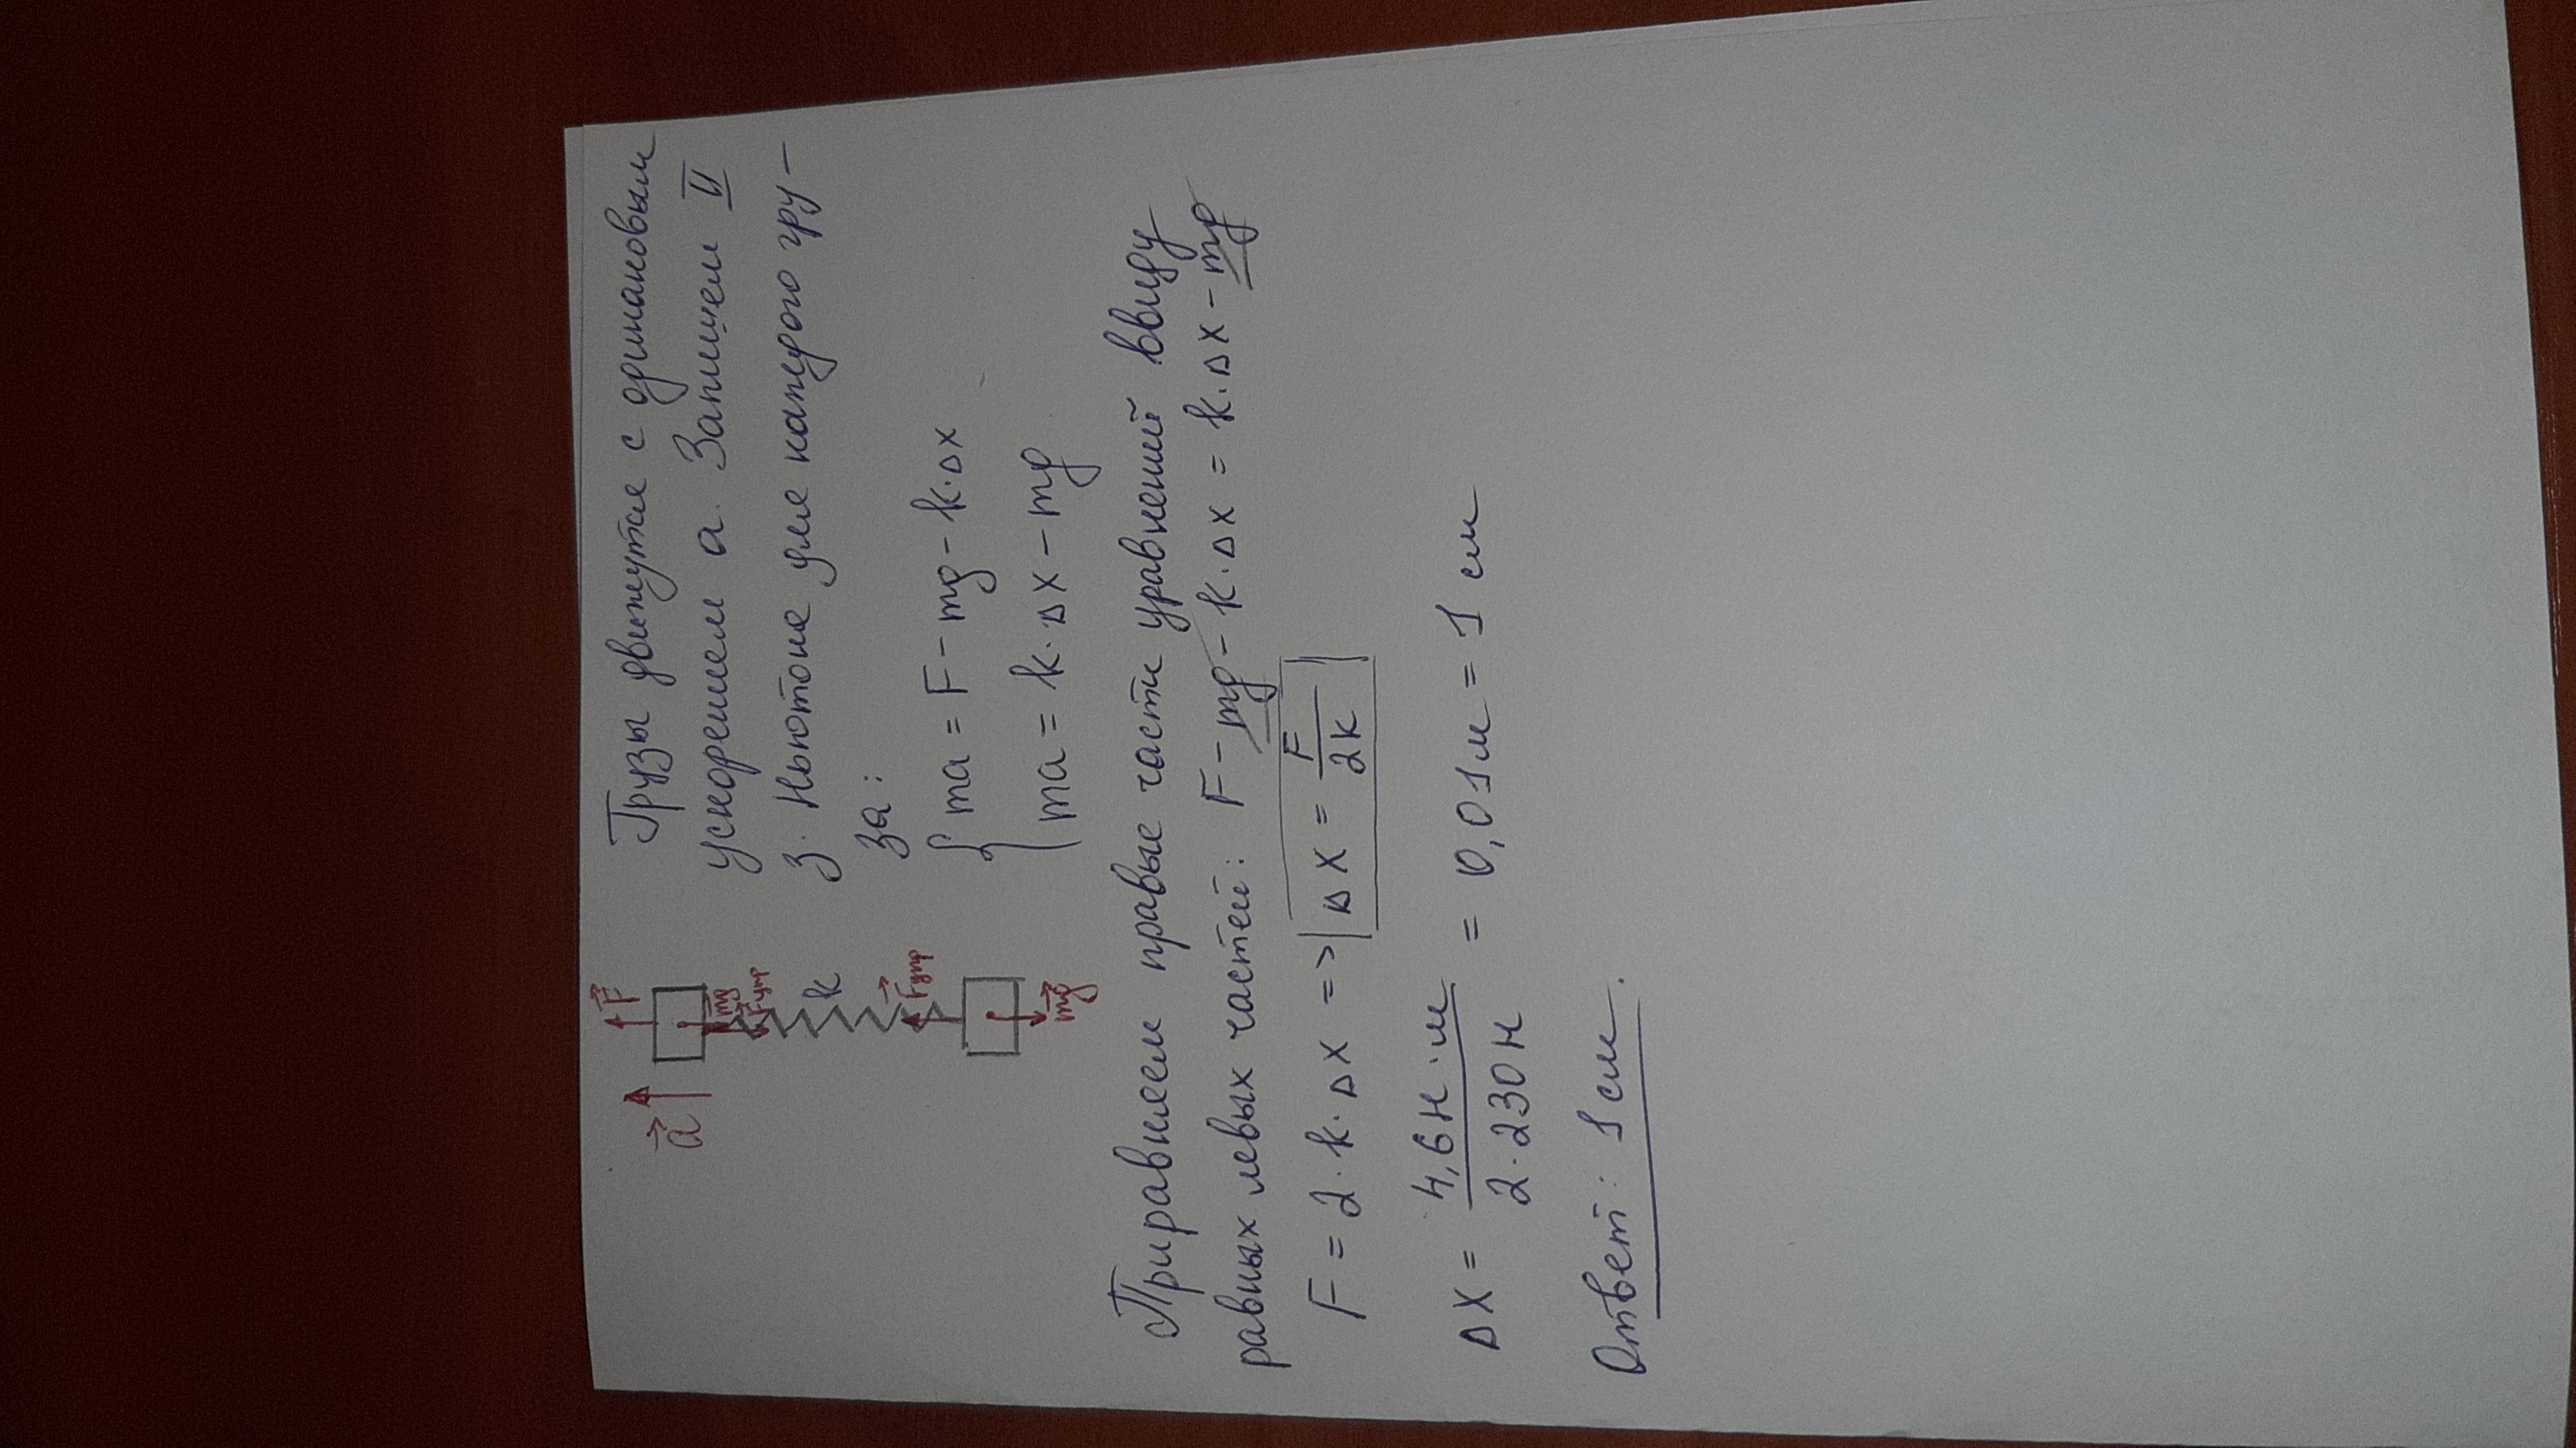 Грузы движутся с одинаковым
ускорением a. Запишем II
з. Ньютона для каждого гру-
за:
a F
mg
Fупр
k
Fупр
mg
{ ma = F - mg - k·Δx
ma = k·Δx - mg
Приравняем правые части уравнений ввиду
равных левых частей: F - mg - k·Δx = k·Δx - mg
F = 2·k·Δx => Δx = F/2k
Δx = 4,6 Н·м / 2·230 Н = 0,01 м = 1 см
Ответ: 1 см.